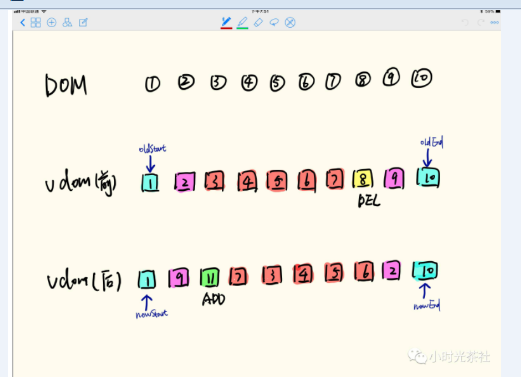 DOM ① ② ③ ④ ⑤ ⑥ ⑦ ⑧ ⑨ ⑩
oldStart oldEnd
vdom(前) 1 2 3 4 5 6 7 8 9 10
DEL
vdom(后) 1 9 11 7 3 4 5 6 2 10
ADD
newStart newEnd
小时光茶社